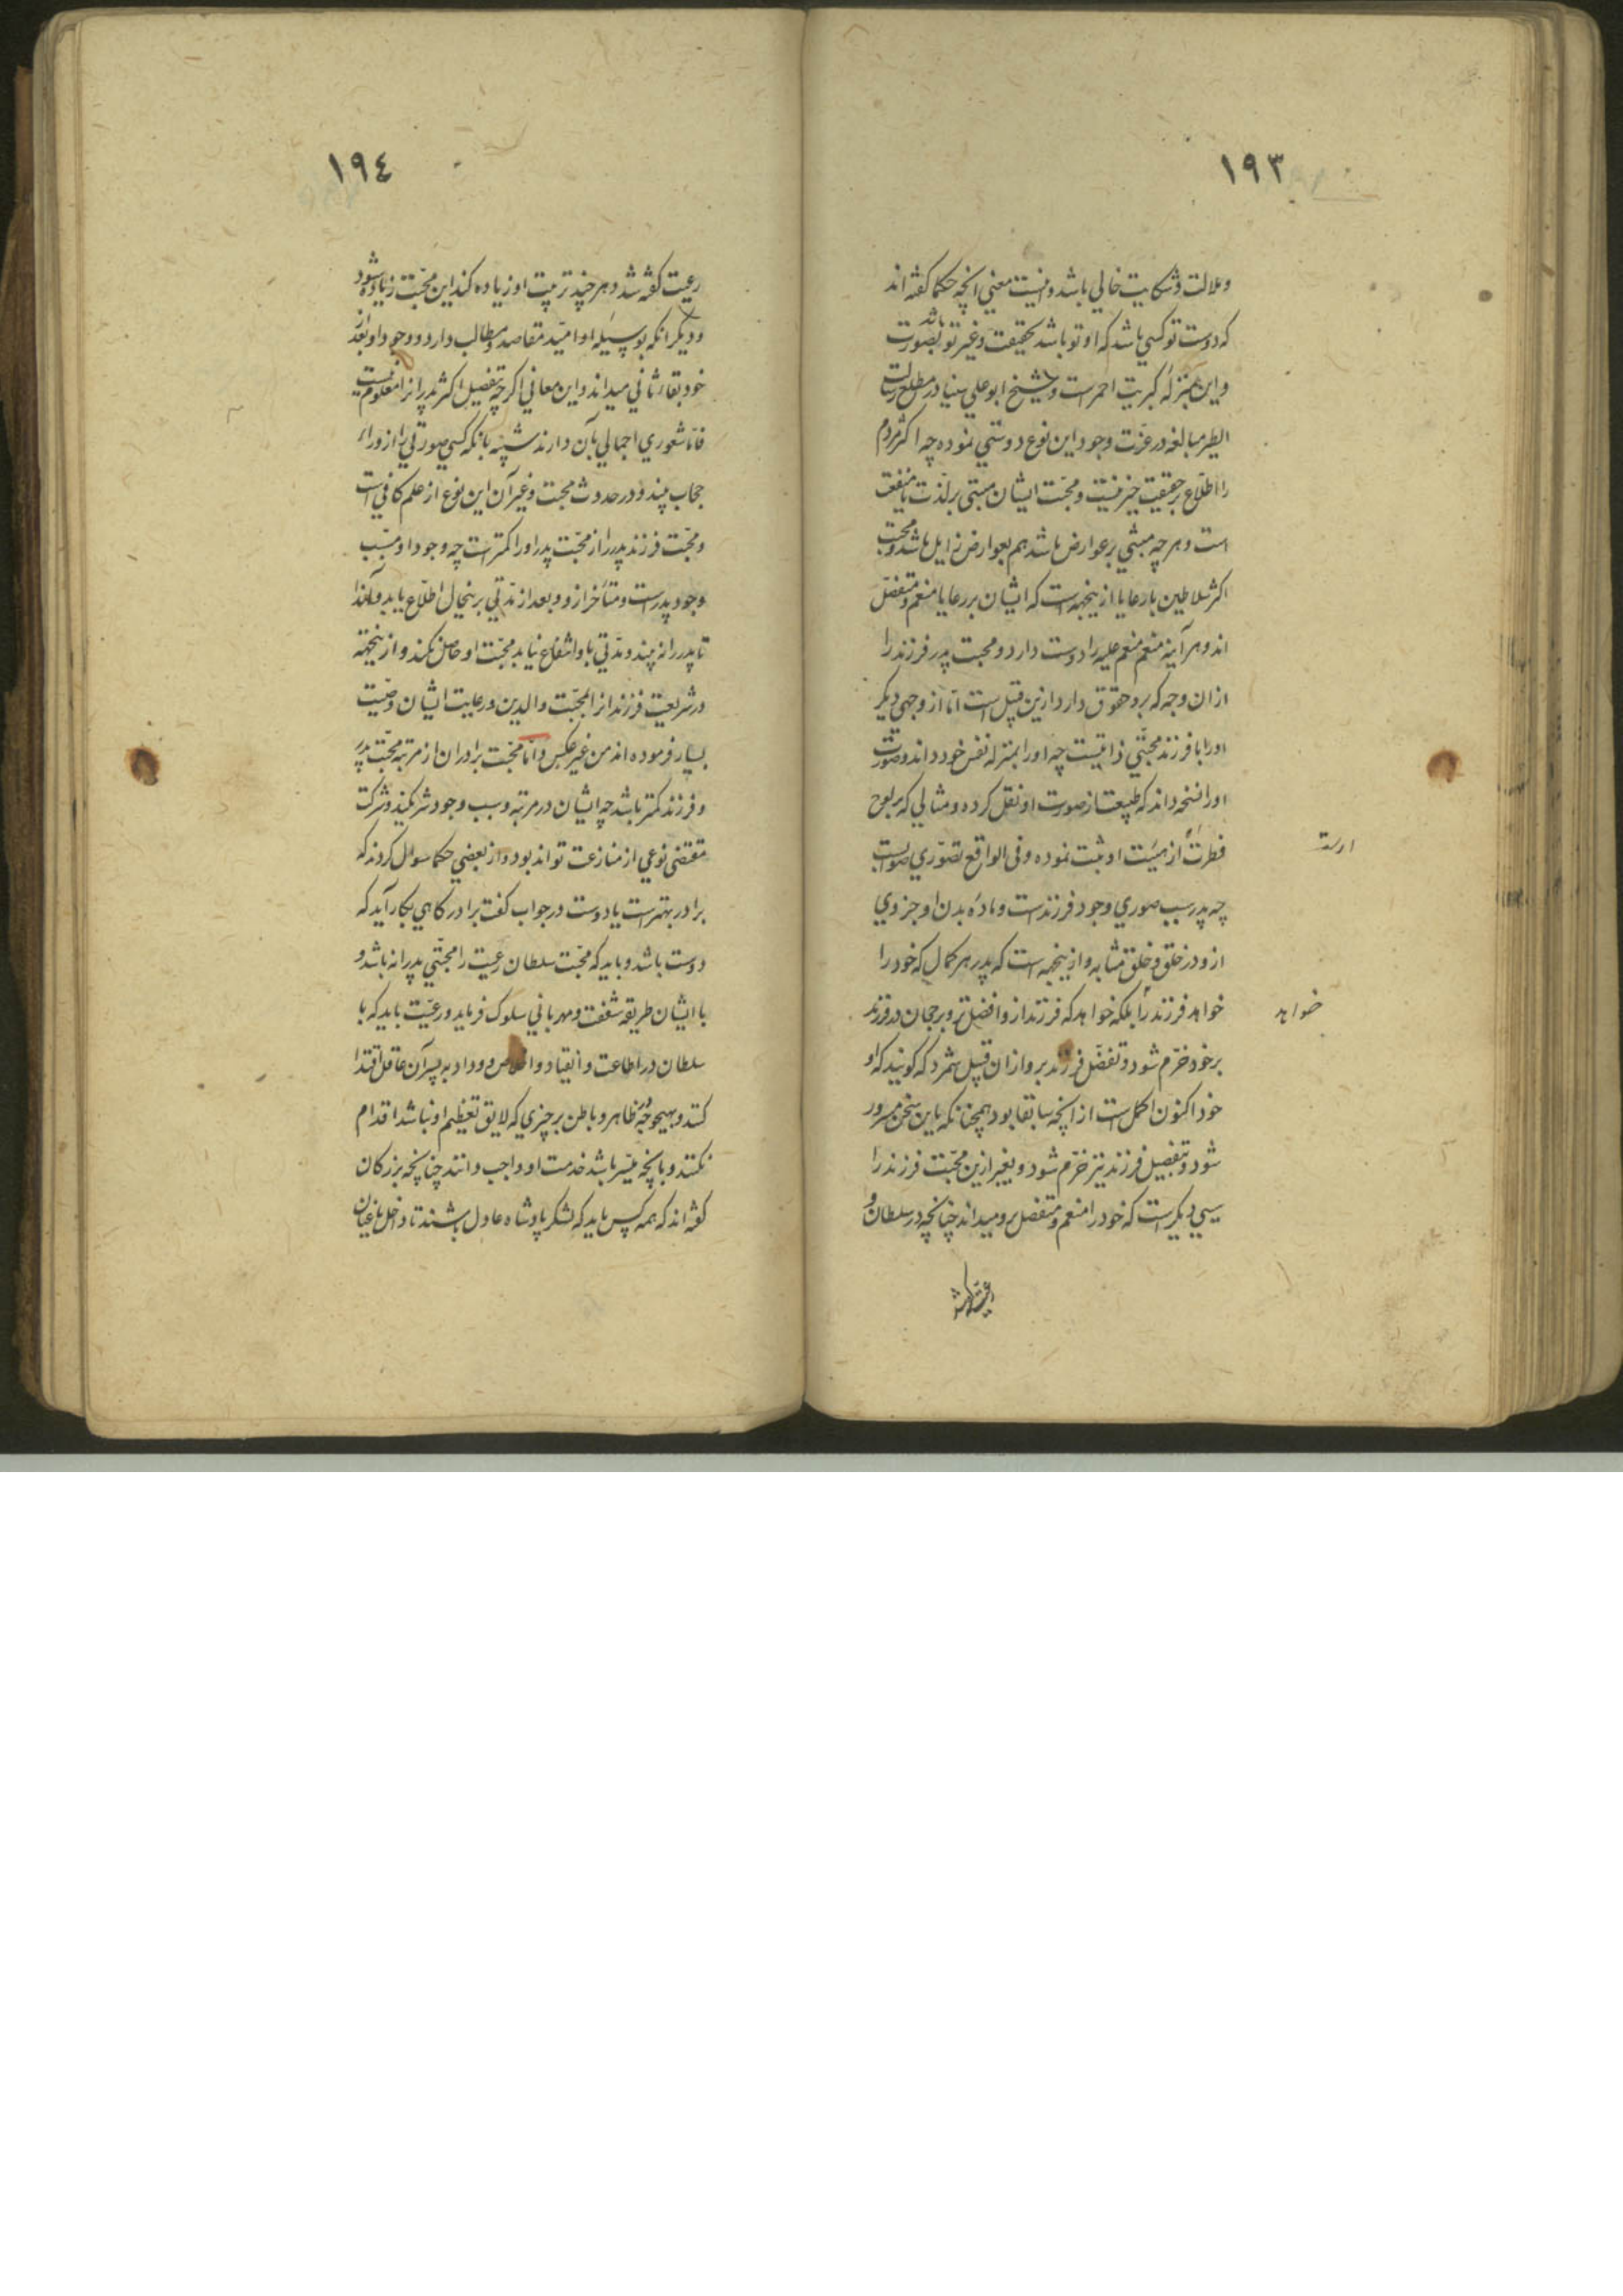 ١٩٣
وملالت وشكايت خالي باشد واينست معني انچه حكما كفته اند
كه دوست تو كسي باشد كه او تو باشد بحقيقت وغير تو باشد بصورت
واين بمنزله كبريت احمرست وشيخ ابو علي سينا در مطلع رسالت
الطير مبالغه در عزت وجود اين نوع دوستي نموده چه اكثر مردم
را اطلاع بر حقيقت خير نيست ومحبت ايشان مبتني بر لذت يا منفعت
است وهر چه مبتني بر عوارض باشد هم بعوارض زايل باشد ومحبت
اكثر سلاطين با رعايا ازينجهت است كه ايشان بر رعايا منعم ومتفضل
اند وهر آينه منعم منعم عليه را دوست دارد ومحبت پدر فرزند را
ازان وجه كه برو حقوق دارد ازين قبيل است اما از وجهي ديكر
اورا با فرزند محبتي ذاتيست چه اورا بمنزله نفس خود داند وصورت
اورا نسخه داند كه طبيعت از صورت او نقل كرده ومثالي كه بر لوح
فطرت از هيئت او ثبت نموده وفي الواقع تصوري صوابست
ارست
چه پدر سبب صوري وجود فرزندست وماده بدن او جزوي
ازو در خلق وخلق مشابه وازينجهت است كه پدر هر كمال كه خود را
خواهد فرزند را بلكه خواهد كه فرزند ازو افضل تر وبرجحان فرزند
خواهد
بر خود خرم شود وتفضل فرزند برو ازان قبيل شمرد كه كويند كه او
خود اكنون اكمل است از انچه سابقا بود همچنانكه باين سخن مسرور
شود وتفضيل فرزند نيز خرم شود وبغير ازين محبت فرزند را
سببي ديكرست كه خود را منعم ومتفضل برو ميداند چنانچه در سلطان و
رعيت كفته شد
١٩٤
رعيت كفته شد وهر چند تربيت او زياده كند اين محبت زياده شود
وديكر انكه بوسيله او اميد مقاصد ومطالب دارد ووجود او بعد از
خود بقاء ثاني ميداند واين معاني اكر چه بتفصيل اكثر پدرانرا معلوم نيست
فاما شعوري اجمالي بآن دارند شبيه بانكه كسي صورتي را از وراء
حجاب بيند ودر حدوث محبت وغير آن اين نوع از علم كافي است
ومحبت فرزند پدر را از محبت پدر اورا كمترست چه وجود او مسبب
وجود پدرست ومتأخر ازو وبعد از مدتي برينحال اطلاع يابد ولهذا
تا پدر را نه بيند ومدتي باو انتفاع نيابد محبت او حاصل نكند وازينجهة
در شريعت فرزندانرا بمحبت والدين ورعايت ايشان وصيت
بسيار فرموده اند من غير عكس واما محبت برادران از مرتبه محبت پدر
وفرزند كمتر باشد چه ايشان در مرتبه وسبب وجود شريكند وشركت
مقتضى نوعي از منازعت تواند بود واز بعضي حكما سوال كردند كه
برادر بهترست يا دوست در جواب كفت برادر كاهي بكار آيد كه
دوست باشد وبايد كه محبت سلطان رعيت را محبتي پدرانه باشد و
با ايشان طريقه شفقت ومهرباني سلوك فرمايد ورعيت بايد كه با
سلطان در اطاعت وانقياد واخلاص ووداد به پسران عاقل اقتدا
كنند وبهيچ وجه ظاهر وباطن بر چيزي كه لايق تعظيم او نباشد اقدام
نكنند وبانچه ميسر باشد خدمت او واجب دانند چنانچه بزركان
كفته اند كه همه كس بايد كه لشكر پادشاه عادل باشند تا داخل باغيان